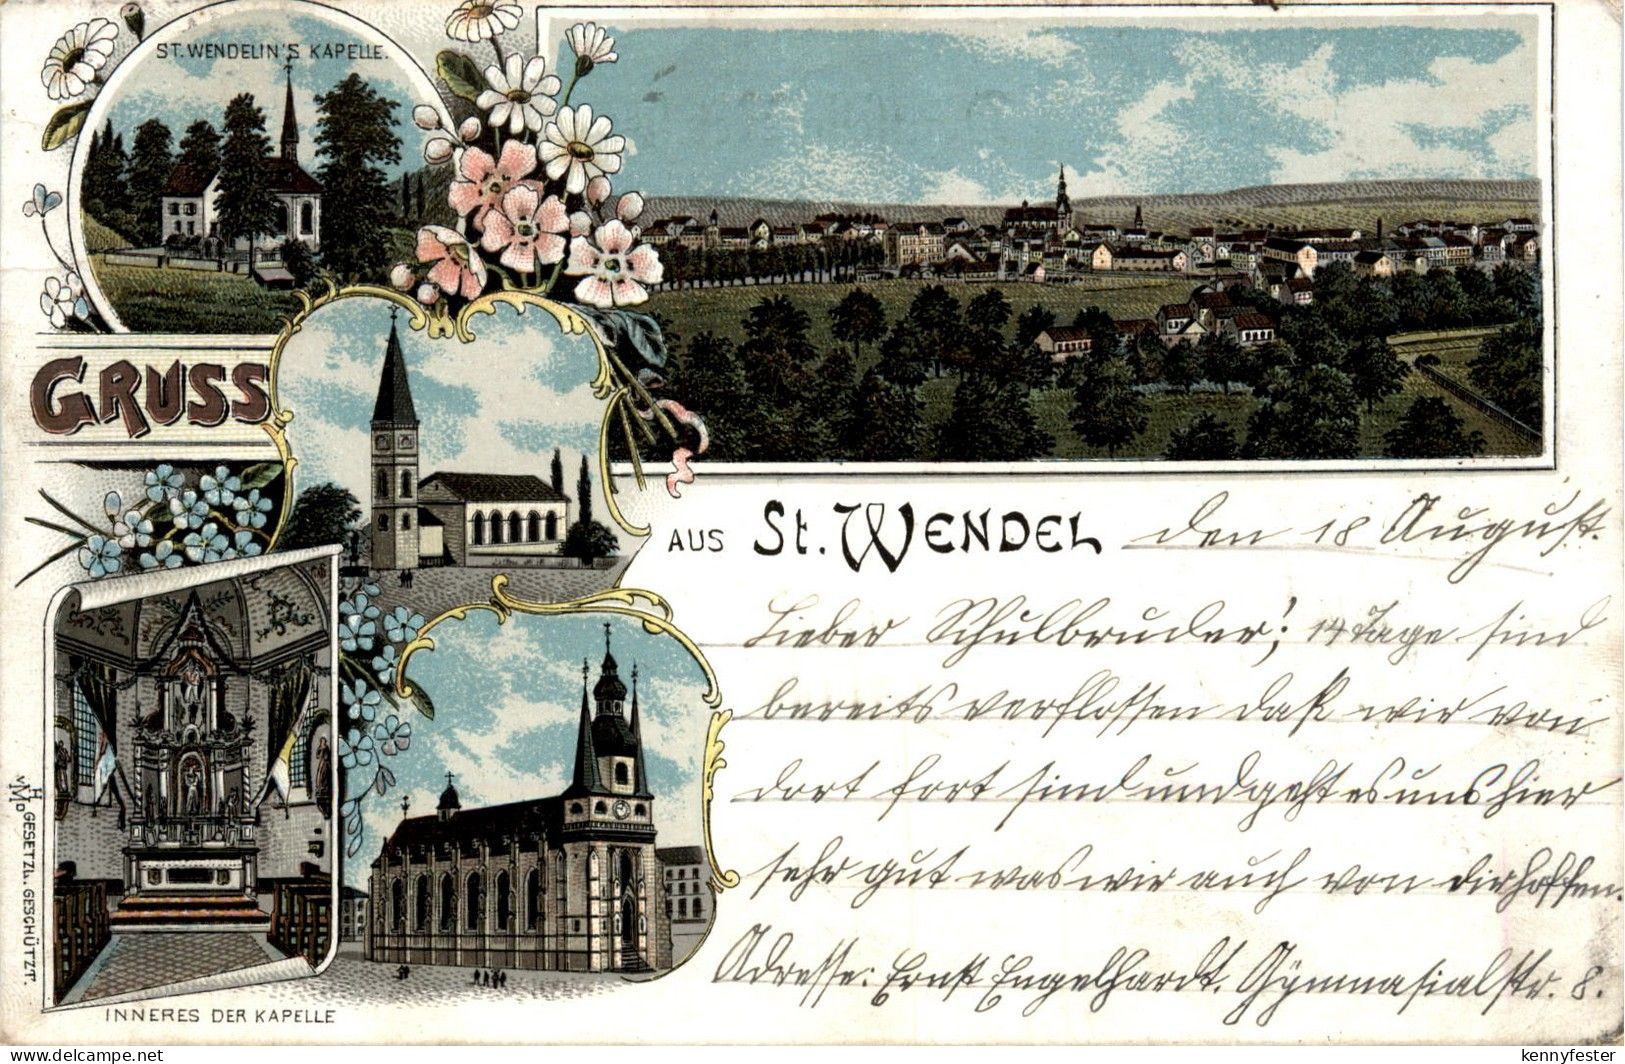 ST. WENDELIN'S KAPELLE.
GRUSS
AUS St. WENDEL
den 18 August.
Lieber Schulbruder! 14 Tage sind
bereits verflossen daß wir von
dort fort sind und geht es uns hier
sehr gut was wir auch von dir hoffen.
Adresse: Ernst Engelhardt. Gymnasialstr. 8.
GESETZL. GESCHÜTZT.
INNERES DER KAPELLE
delcampe.net
kennyfester